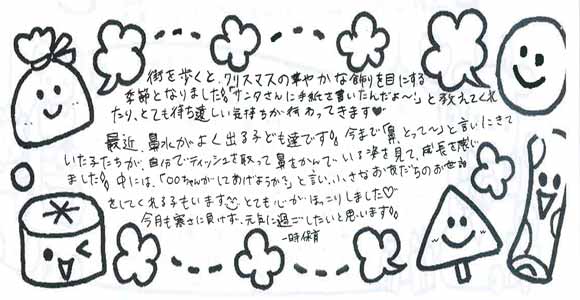 街を歩くと、クリスマスの華やかな飾りを目にする
季節となりました。「サンタさんに手紙を書いたんだよ～！」と教えてくれ
たり、とても待ち遠しい気持ちが伝わってきます♥
最近、鼻水がよく出る子ども達です。今まで「鼻、とって～」と言いにきて
いた子たちが、自分でティッシュを取って鼻をかんでいる姿を見て、成長を感じ
ました。中には、「○○ちゃんがしてあげようか?」と言い、小さなお友だちのお世話
をしてくれる子もいます とても心がほっこりしました♡
今月も寒さに負けず、元気に過ごしたいと思います。
一時保育